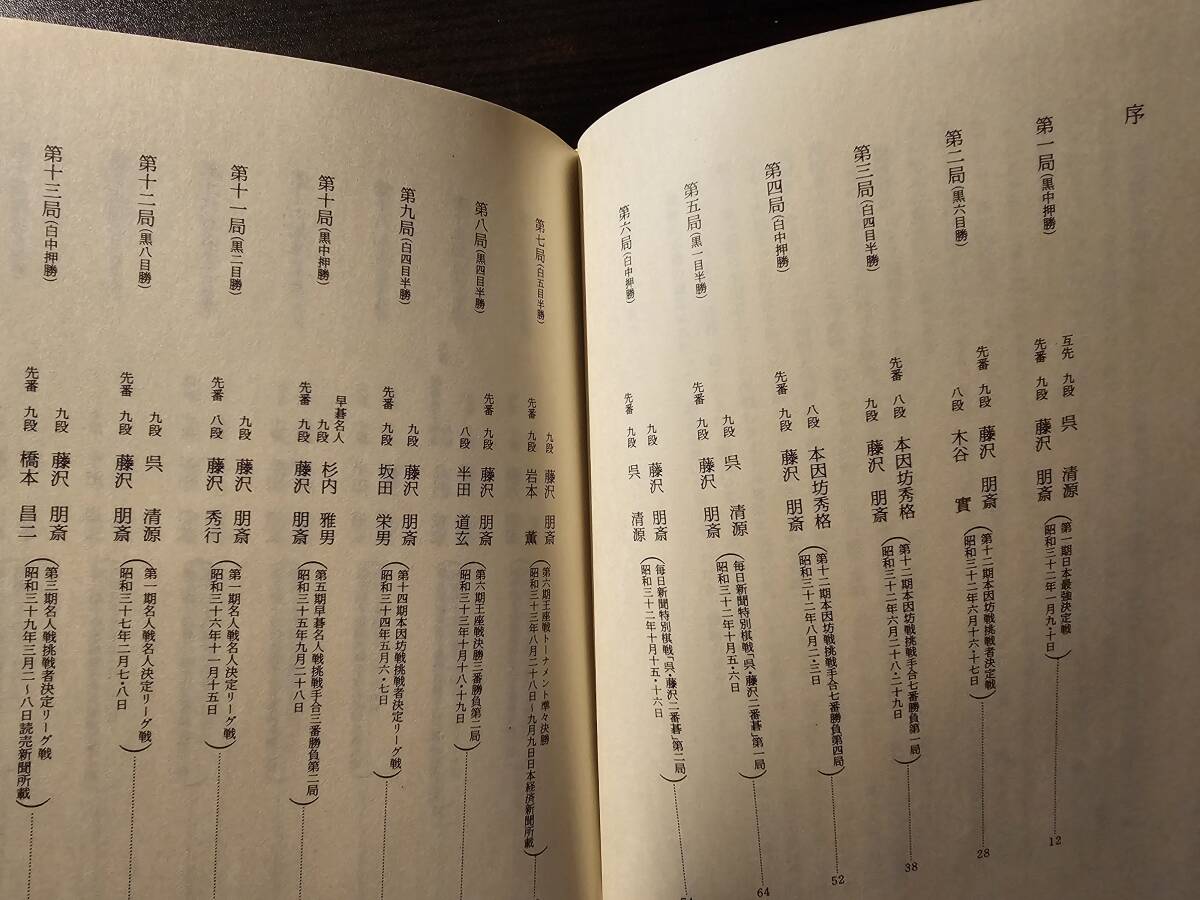 序
第一局(黒中押勝)
互先 九段 呉 清源
先番 九段 藤沢 朋斎
(第一期日本最強決定戦
昭和三十二年一月九・十日)…………12
第二局(黒六目勝)
先番 九段 藤沢 朋斎
八段 木谷 實
(第十二期本因坊戦挑戦者決定戦
昭和三十二年六月十六・十七日)…………28
第三局(白四目半勝)
先番 八段 本因坊秀格
九段 藤沢 朋斎
(第十二期本因坊戦挑戦手合七番勝負第一局
昭和三十二年六月二十八・二十九日)…………38
第四局(白中押勝)
八段 本因坊秀格
先番 九段 藤沢 朋斎
(第十二期本因坊戦挑戦手合七番勝負第四局
昭和三十二年八月二・三日)…………52
第五局(黒一目半勝)
九段 呉 清源
先番 九段 藤沢 朋斎
(毎日新聞特別棋戦「呉・藤沢二番碁」第一局
昭和三十二年十月五・六日)…………64
第六局(白中押勝)
九段 藤沢 朋斎
先番 九段 呉 清源
(毎日新聞特別棋戦「呉・藤沢二番碁」第二局
昭和三十二年十月十五・十六日)…………
第七局(白五目半勝)
九段 藤沢 朋斎
先番 九段 岩本 薫
(第六期王座戦トーナメント準々決勝
昭和三十三年八月二十八日〜九月九日日本経済新聞所載)…………
第八局(黒四目半勝)
先番 九段 藤沢 朋斎
八段 半田 道玄
(第六期王座戦決勝三番勝負第二局
昭和三十三年十月十八・十九日)…………
第九局(白四目半勝)
九段 藤沢 朋斎
先番 九段 坂田 栄男
(第十四期本因坊戦挑戦者決定リーグ戦
昭和三十四年五月六・七日)…………
第十局(黒中押勝)
早碁名人 九段 杉内 雅男
先番 九段 藤沢 朋斎
(第五期早碁名人戦挑戦手合三番勝負第二局
昭和三十五年九月二十八日)…………
第十一局(黒二目勝)
九段 藤沢 朋斎
先番 八段 藤沢 秀行
(第一期名人戦名人決定リーグ戦
昭和三十六年十一月十五日)…………
第十二局(黒八目勝)
九段 呉 清源
先番 九段 藤沢 朋斎
(第一期名人戦名人決定リーグ戦
昭和三十七年二月七・八日)…………
第十三局(白中押勝)
九段 藤沢 朋斎
先番 九段 橋本 昌二
(第三期名人戦挑戦者決定リーグ戦
昭和三十九年三月二〜八日読売新聞所載)…………